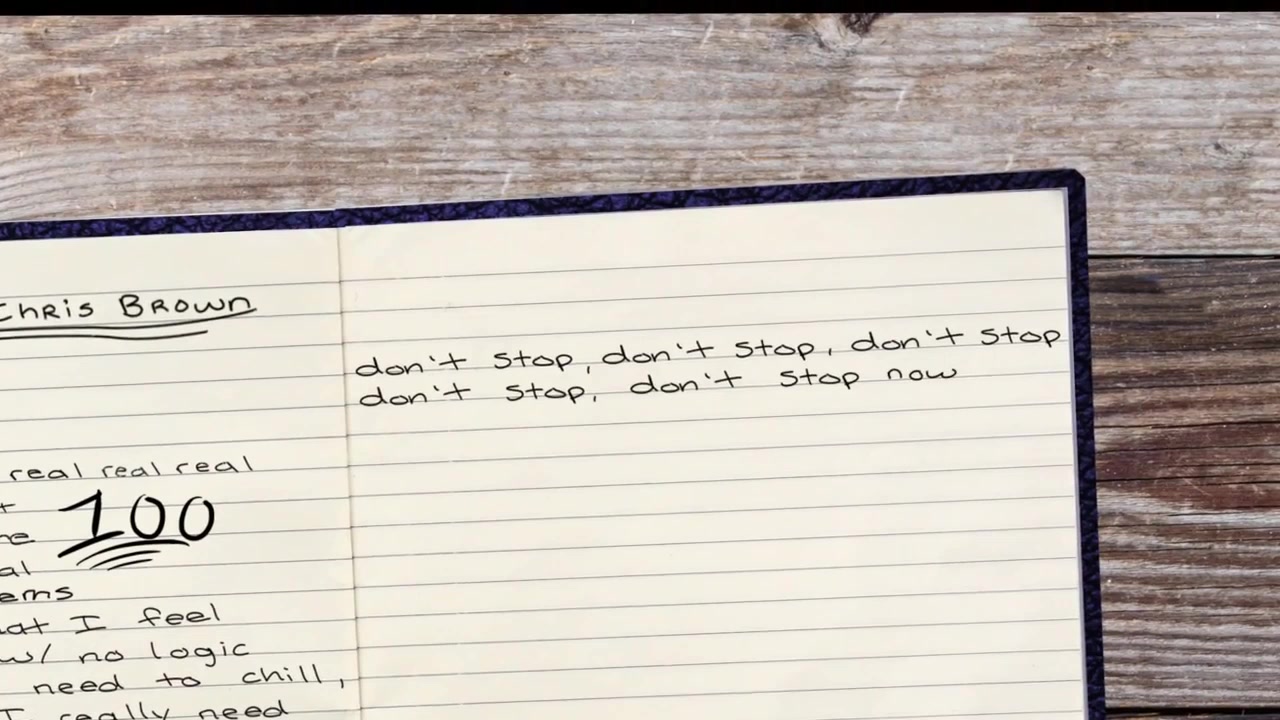 Chris Brown
real real real
100
al
ems
at I feel
w/ no logic
need to chill,
I really need
don't stop, don't stop, don't stop
don't stop, don't stop now